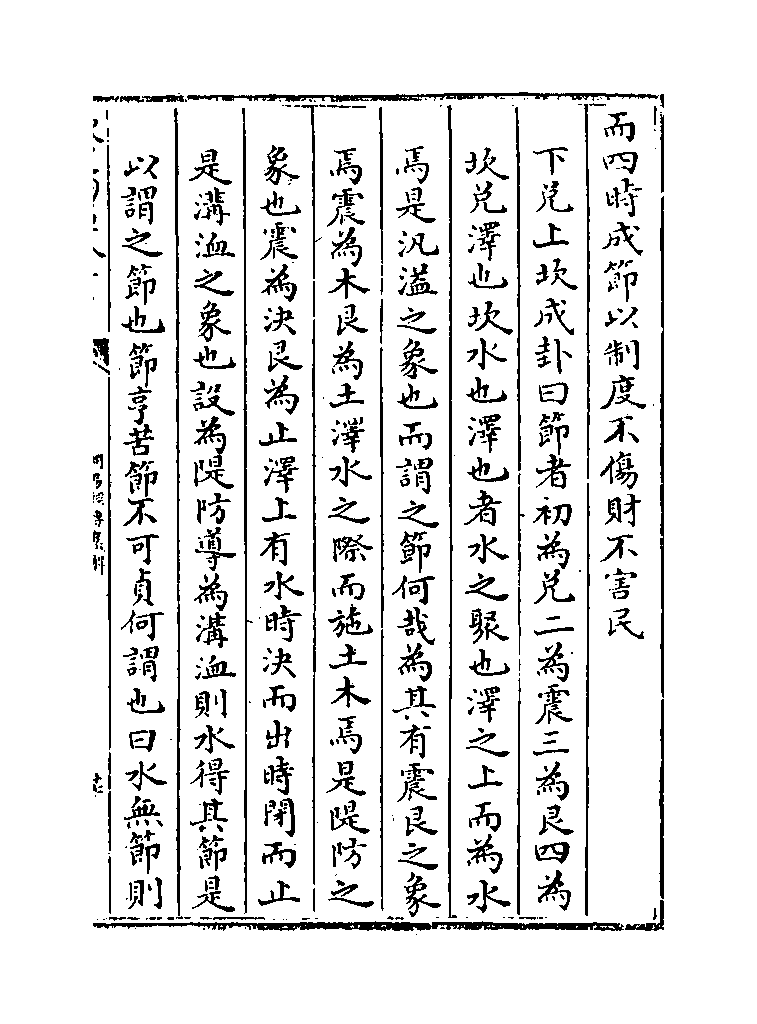 而四時成節以制度不傷財不害民
下兊上坎成卦曰節者初為兊二為震三為艮四為
坎兊澤也坎水也澤也者水之聚也澤之上而為水
焉是汎溢之象也而謂之節何哉為其有震艮之象
焉震為木艮為土澤水之際而施土木焉是隄防之
象也震為決艮為止澤上有水時決而出時閉而止
是溝洫之象也設為隄防導為溝洫則水得其節是
以謂之節也節亨苦節不可貞何謂也曰水無節則